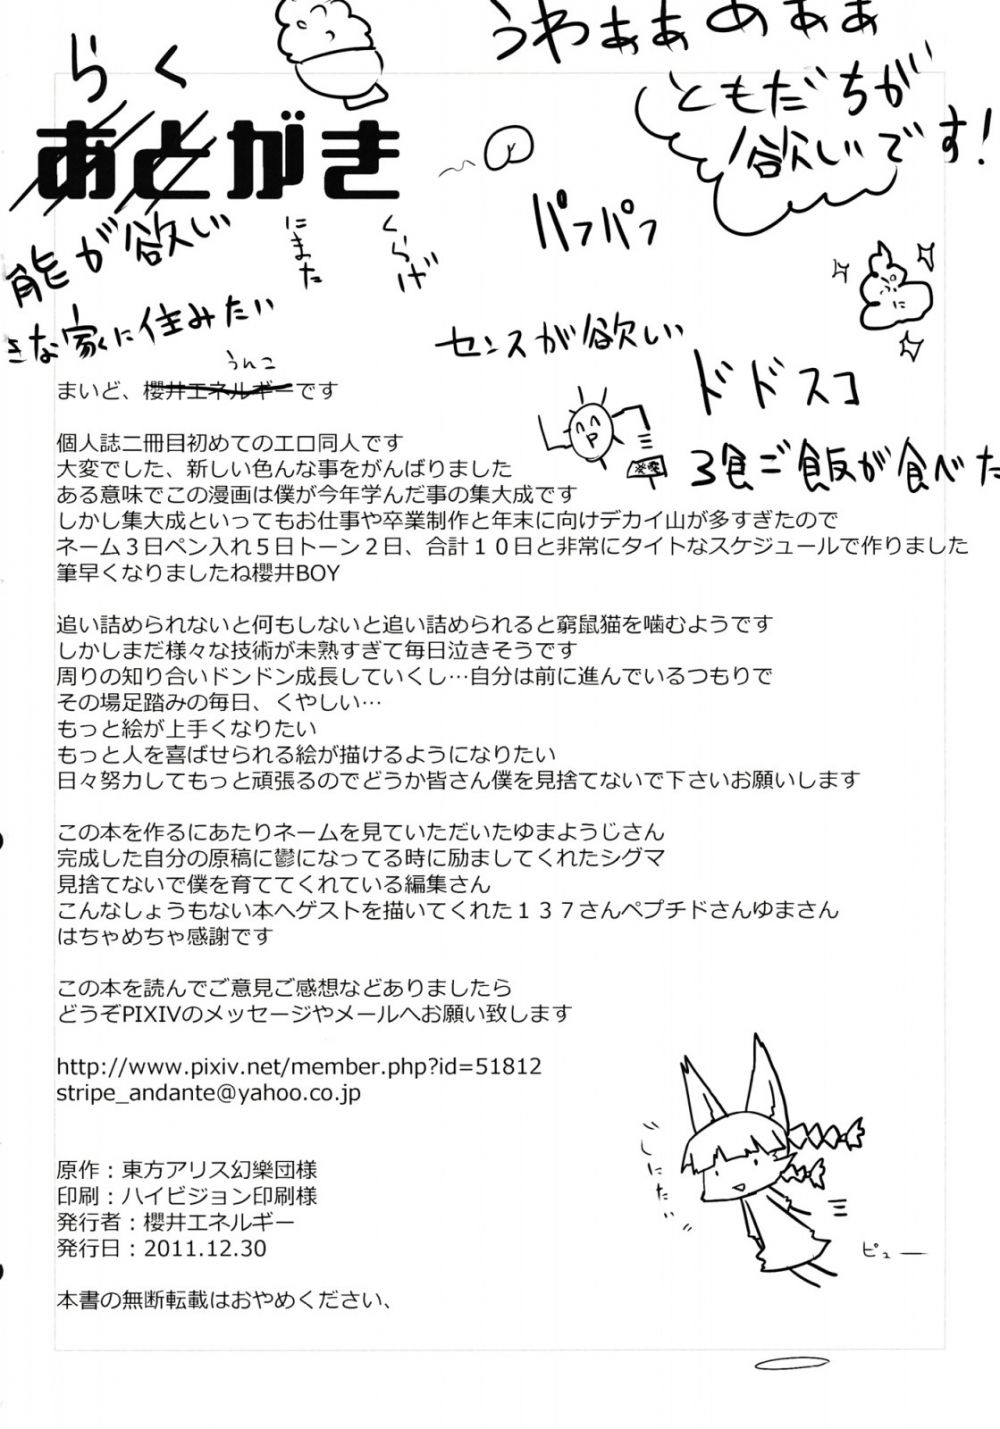 うわぁぁぁぁぁ
らく
ともだちが
欲しいです！
あとがき
パフパフ
能が欲しい
にまた
くらげ
きな家に住みたい
センスが欲しい
ドドスコ
3食ご飯が食べた
うんこ
まいど、櫻井エネルギーです
個人誌二冊目初めてのエロ同人です
大変でした、新しい色んな事をがんばりました
ある意味でこの漫画は僕が今年学んだ事の集大成です
しかし集大成といってもお仕事や卒業制作と年末に向けデカイ山が多すぎたので
ネーム３日ペン入れ５日トーン２日、合計１０日と非常にタイトなスケジュールで作りました
筆早くなりましたね櫻井BOY
追い詰められないと何もしないと追い詰められると窮鼠猫を噛むようです
しかしまだ様々な技術が未熟すぎて毎日泣きそうです
周りの知り合いドンドン成長していくし…自分は前に進んでいるつもりで
その場足踏みの毎日、くやしい…
もっと絵が上手くなりたい
もっと人を喜ばせられる絵が描けるようになりたい
日々努力してもっと頑張るのでどうか皆さん僕を見捨てないで下さいお願いします
この本を作るにあたりネームを見ていただいたゆまようじさん
完成した自分の原稿に鬱になってる時に励ましてくれたシグマ
見捨てないで僕を育ててくれている編集さん
こんなしょうもない本へゲストを描いてくれた１３７さんペプチドさんゆまさん
はちゃめちゃ感謝です
この本を読んでご意見ご感想などありましたら
どうぞPIXIVのメッセージやメールへお願い致します
http://www.pixiv.net/member.php?id=51812
stripe_andante@yahoo.co.jp
原作：東方アリス幻樂団様
印刷：ハイビジョン印刷様
発行者：櫻井エネルギー
発行日：2011.12.30
本書の無断転載はおやめください、
じにたい
ピュー